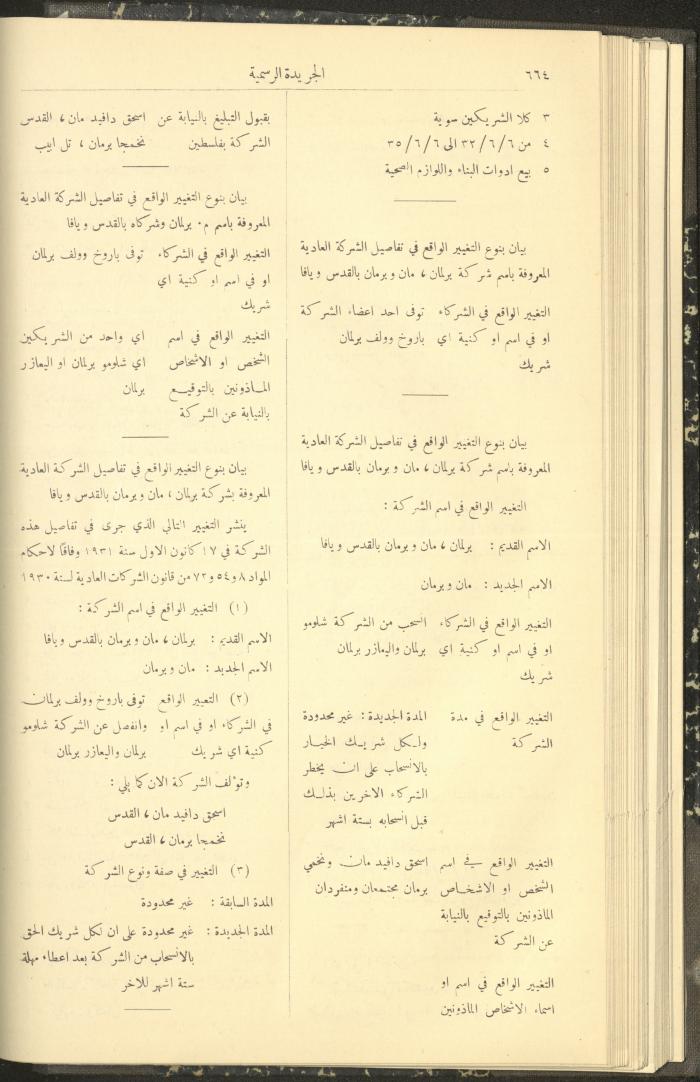 ٦٦٤
الجريدة الرسمية
٣ كلا الشريكين سوية
٤ من ٣٢/٦/٦ الى ٣٥/٦/٦
٥ بيع ادوات البناء واللوازم الصحية
بيان بنوع التغيير الواقع في تفاصيل الشركة العادية
المعروفة باسم شركة برلمان ، مان وبرمان بالقدس ويافا
التغيير الواقع في الشركاء توفى احد اعضاء الشركة
او في اسم او كنية اي باروخ وولف برلمان
شريك
بيان بنوع التغيير الواقع في تفاصيل الشركة العادية
المعروفة باسم شركة برلمان ، مان وبرمان بالقدس ويافا
التغيير الواقع في اسم الشركة :
الاسم القديم : برلمان ، مان وبرمان بالقدس ويافا
الاسم الجديد : مان وبرمان
التغيير الواقع في الشركاء انسحب من الشركة شلومو
او في اسم او كنية اي برلمان واليعازر برلمان
شريك
التغيير الواقع في مدة المدة الجديدة : غير محدودة
الشركة ولكل شريك الخيار
بالانسحاب على ان يخطر
الشركاء الاخرين بذلك
قبل انسحابه بستة اشهر
التغيير الواقع في اسم اسحق دافيد مان ونخمي
الشخص او الاشخاص برمان مجتمعان ومنفردان
المأذونين بالتوقيع بالنيابة
عن الشركة
التغيير الواقع في اسم او
اسماء الاشخاص المأذونين
بقبول التبليغ بالنيابة عن اسحق دافيد مان ، القدس
الشركة بفلسطين نخمجا برمان ، تل ابيب
بيان بنوع التغيير الواقع في تفاصيل الشركة العادية
المعروفة باسم م. برلمان وشركاه بالقدس ويافا
التغيير الواقع في الشركاء توفى باروخ وولف برلمان
او في اسم او كنية اي
شريك
التغيير الواقع في اسم اي واحد من الشريكين
الشخص او الاشخاص اي شلومو برلمان او اليعازر
المأذونين بالتوقيع برلمان
بالنيابة عن الشركة
بيان بنوع التغيير الواقع في تفاصيل الشركة العادية
المعروفة بشركة برلمان ، مان وبرمان بالقدس ويافا
ينشر التغيير التالي الذي جرى في تفاصيل هذه
الشركة في ١٧ كانون الاول سنة ١٩٣١ وفاقًا لاحكام
المواد ٨ و٥٤ و٧٢ من قانون الشركات العادية لسنة ١٩٣٠
(١) التغيير الواقع في اسم الشركة :
الاسم القديم : برلمان ، مان وبرمان بالقدس ويافا
الاسم الجديد : مان وبرمان
(٢) التغيير الواقع توفى باروخ وولف برلمان
في الشركاء او في اسم او وانفصل عن الشركة شلومو
كنية اي شريك برلمان واليعازر برلمان
وتؤلف الشركة الان كما يلي :
اسحق دافيد مان ، القدس
نخمجا برمان ، القدس
(٣) التغيير في صفة ونوع الشركة
المدة السابقة : غير محدودة
المدة الجديدة : غير محدودة على ان لكل شريك الحق
بالانسحاب من الشركة بعد اعطاء مهلة
ستة اشهر للاخر